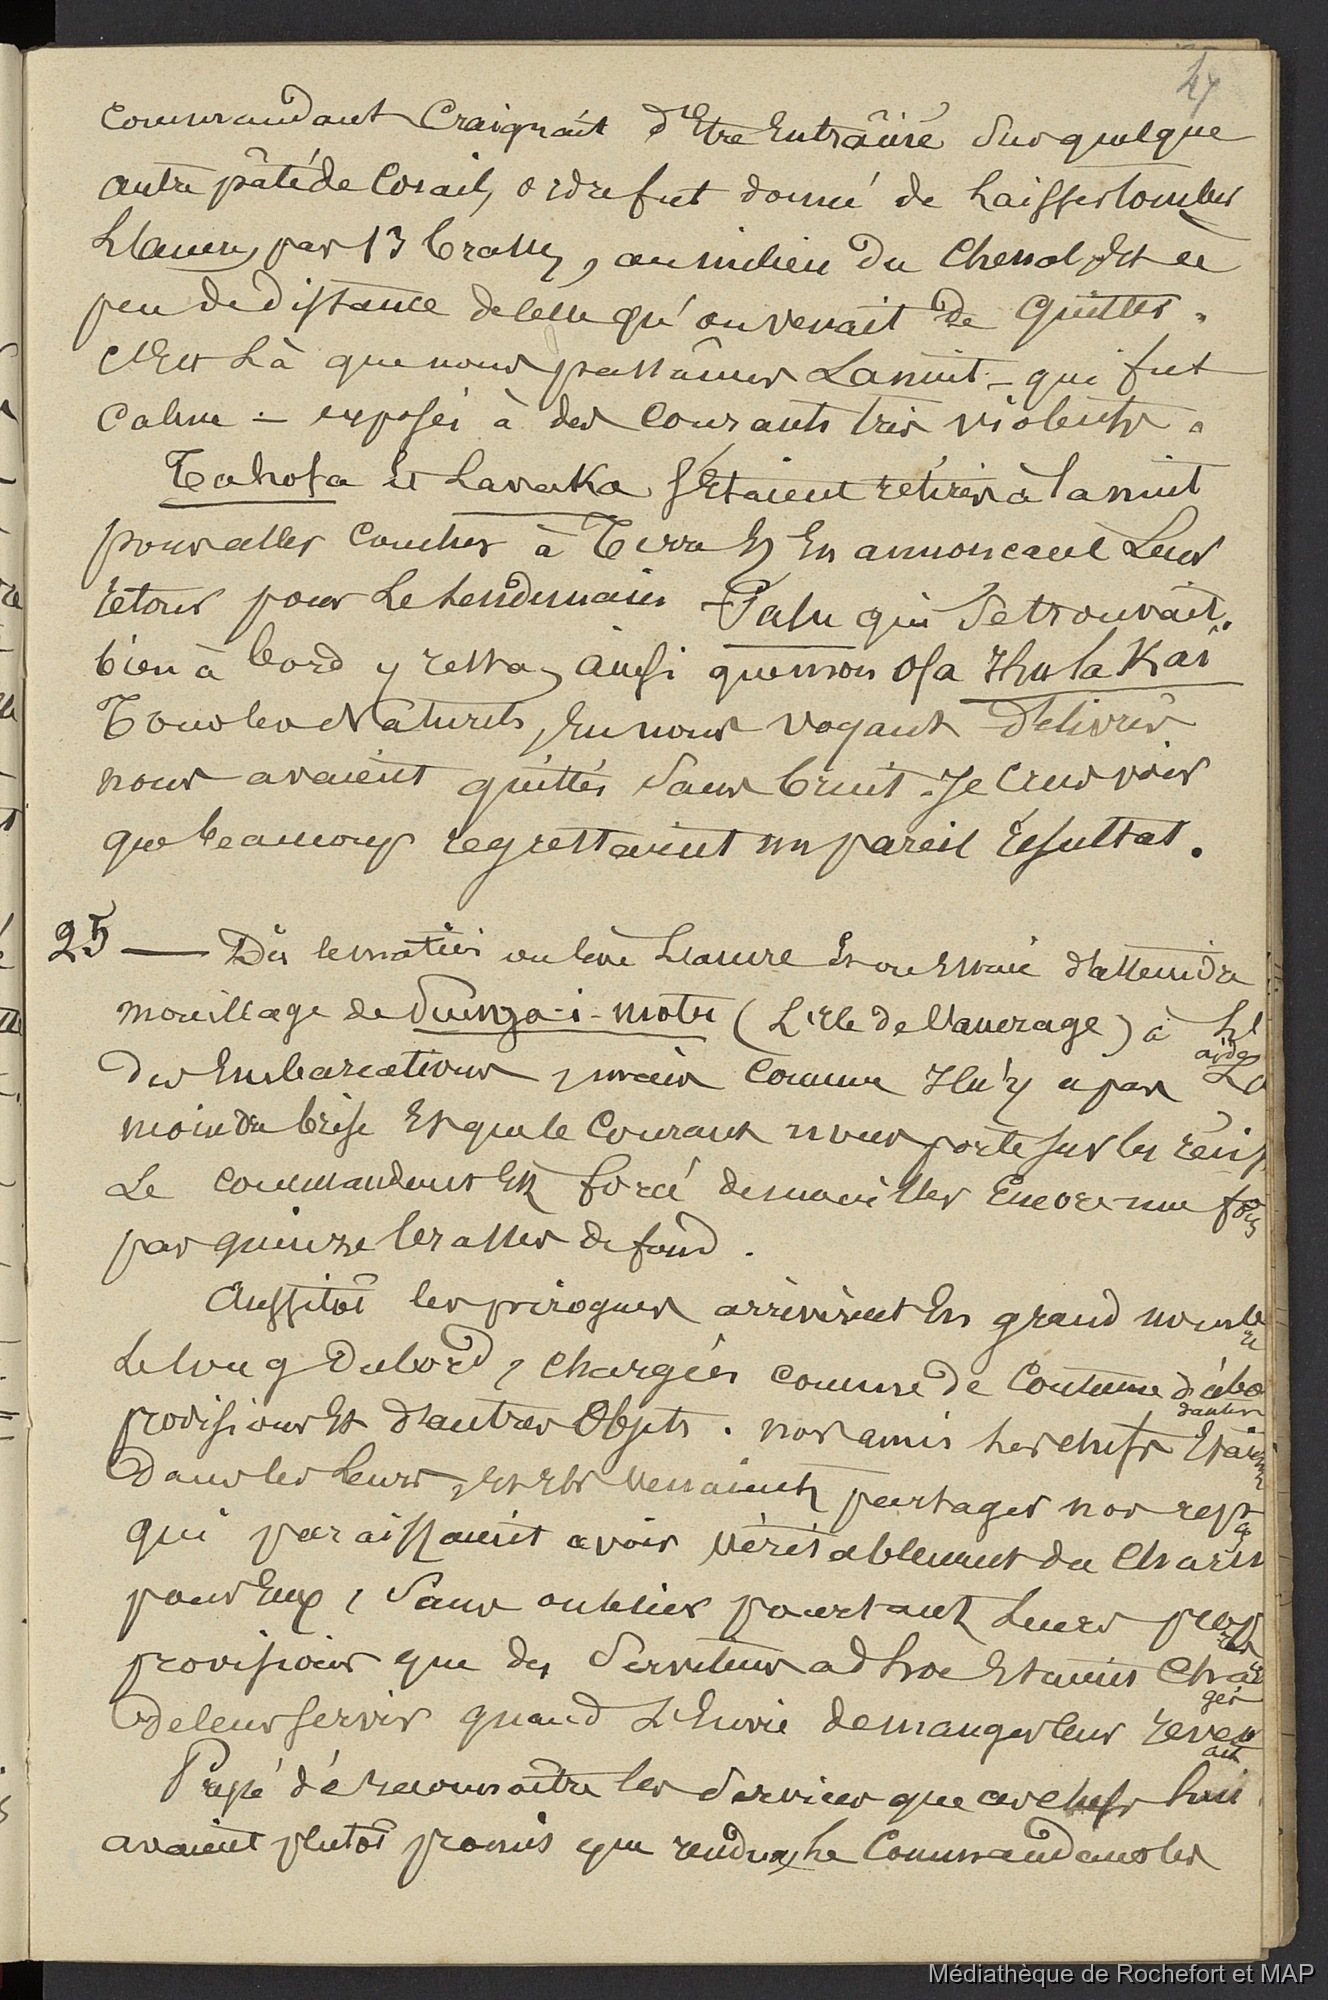 47
commandant Craignait d'Etre Entrâiné sur quelque
autre pâté de Corail, ordre fut donné de Laisser tomber
L'ancre, par 13 brasses, au milieu du Chenal Et à
peu de distance de celle qu'on venait de Quitter.
C'Est Là que nous passâmes La nuit – qui fut
Calme – exposés à des Courants très violents.
Tahofa Et Lavaka s'Etaient rétirés à la nuit
pour aller Coucher à Terre En annoncant Leur
retour pour Le Lendemain Palu qui se trouvait
bien à bord y resta, ainsi que mon Ofa
Tous les Naturels, En nous voyant délivrés
nous avaient quittés sans bruit. Je Crus voir
que beaucoup regrettaient un pareil résultat.
25 — Dès le matin on lève L'ancre Et on Essaie d'atteindre
mouillage de (L'Ile de l'ancrage) à L'
aide
des Embarcations, mais Comme Il n'y a pas La
moindre brise Et que le Courant nous porte sur les récifs
Le Commandant Est forcé de mouiller Encore une fois
par quinze brasses de fond.
Aussitôt les pirogues arrivèrent En grand nombre
Le long du bord, chargées comme de Coutume d'abo
dantes
provisions Et d'autres Objets. nos amis Les chefs Etaient
dans les Leurs, Et Ils venaient partager nos repas
qui paraissaient avoir véritablement du Charme
pour Eux, sans oublier pourtant Leurs propres
provisions que des Serviteurs ad hoc Etaient Char
gés
de leur servir quand L'Envie de manger leur reven
ait
Pressé de reconnaître les services que ces chefs Lui
avaient plutôt promis que rendus, Le Commandant les
Médiathèque de Rochefort et MAP